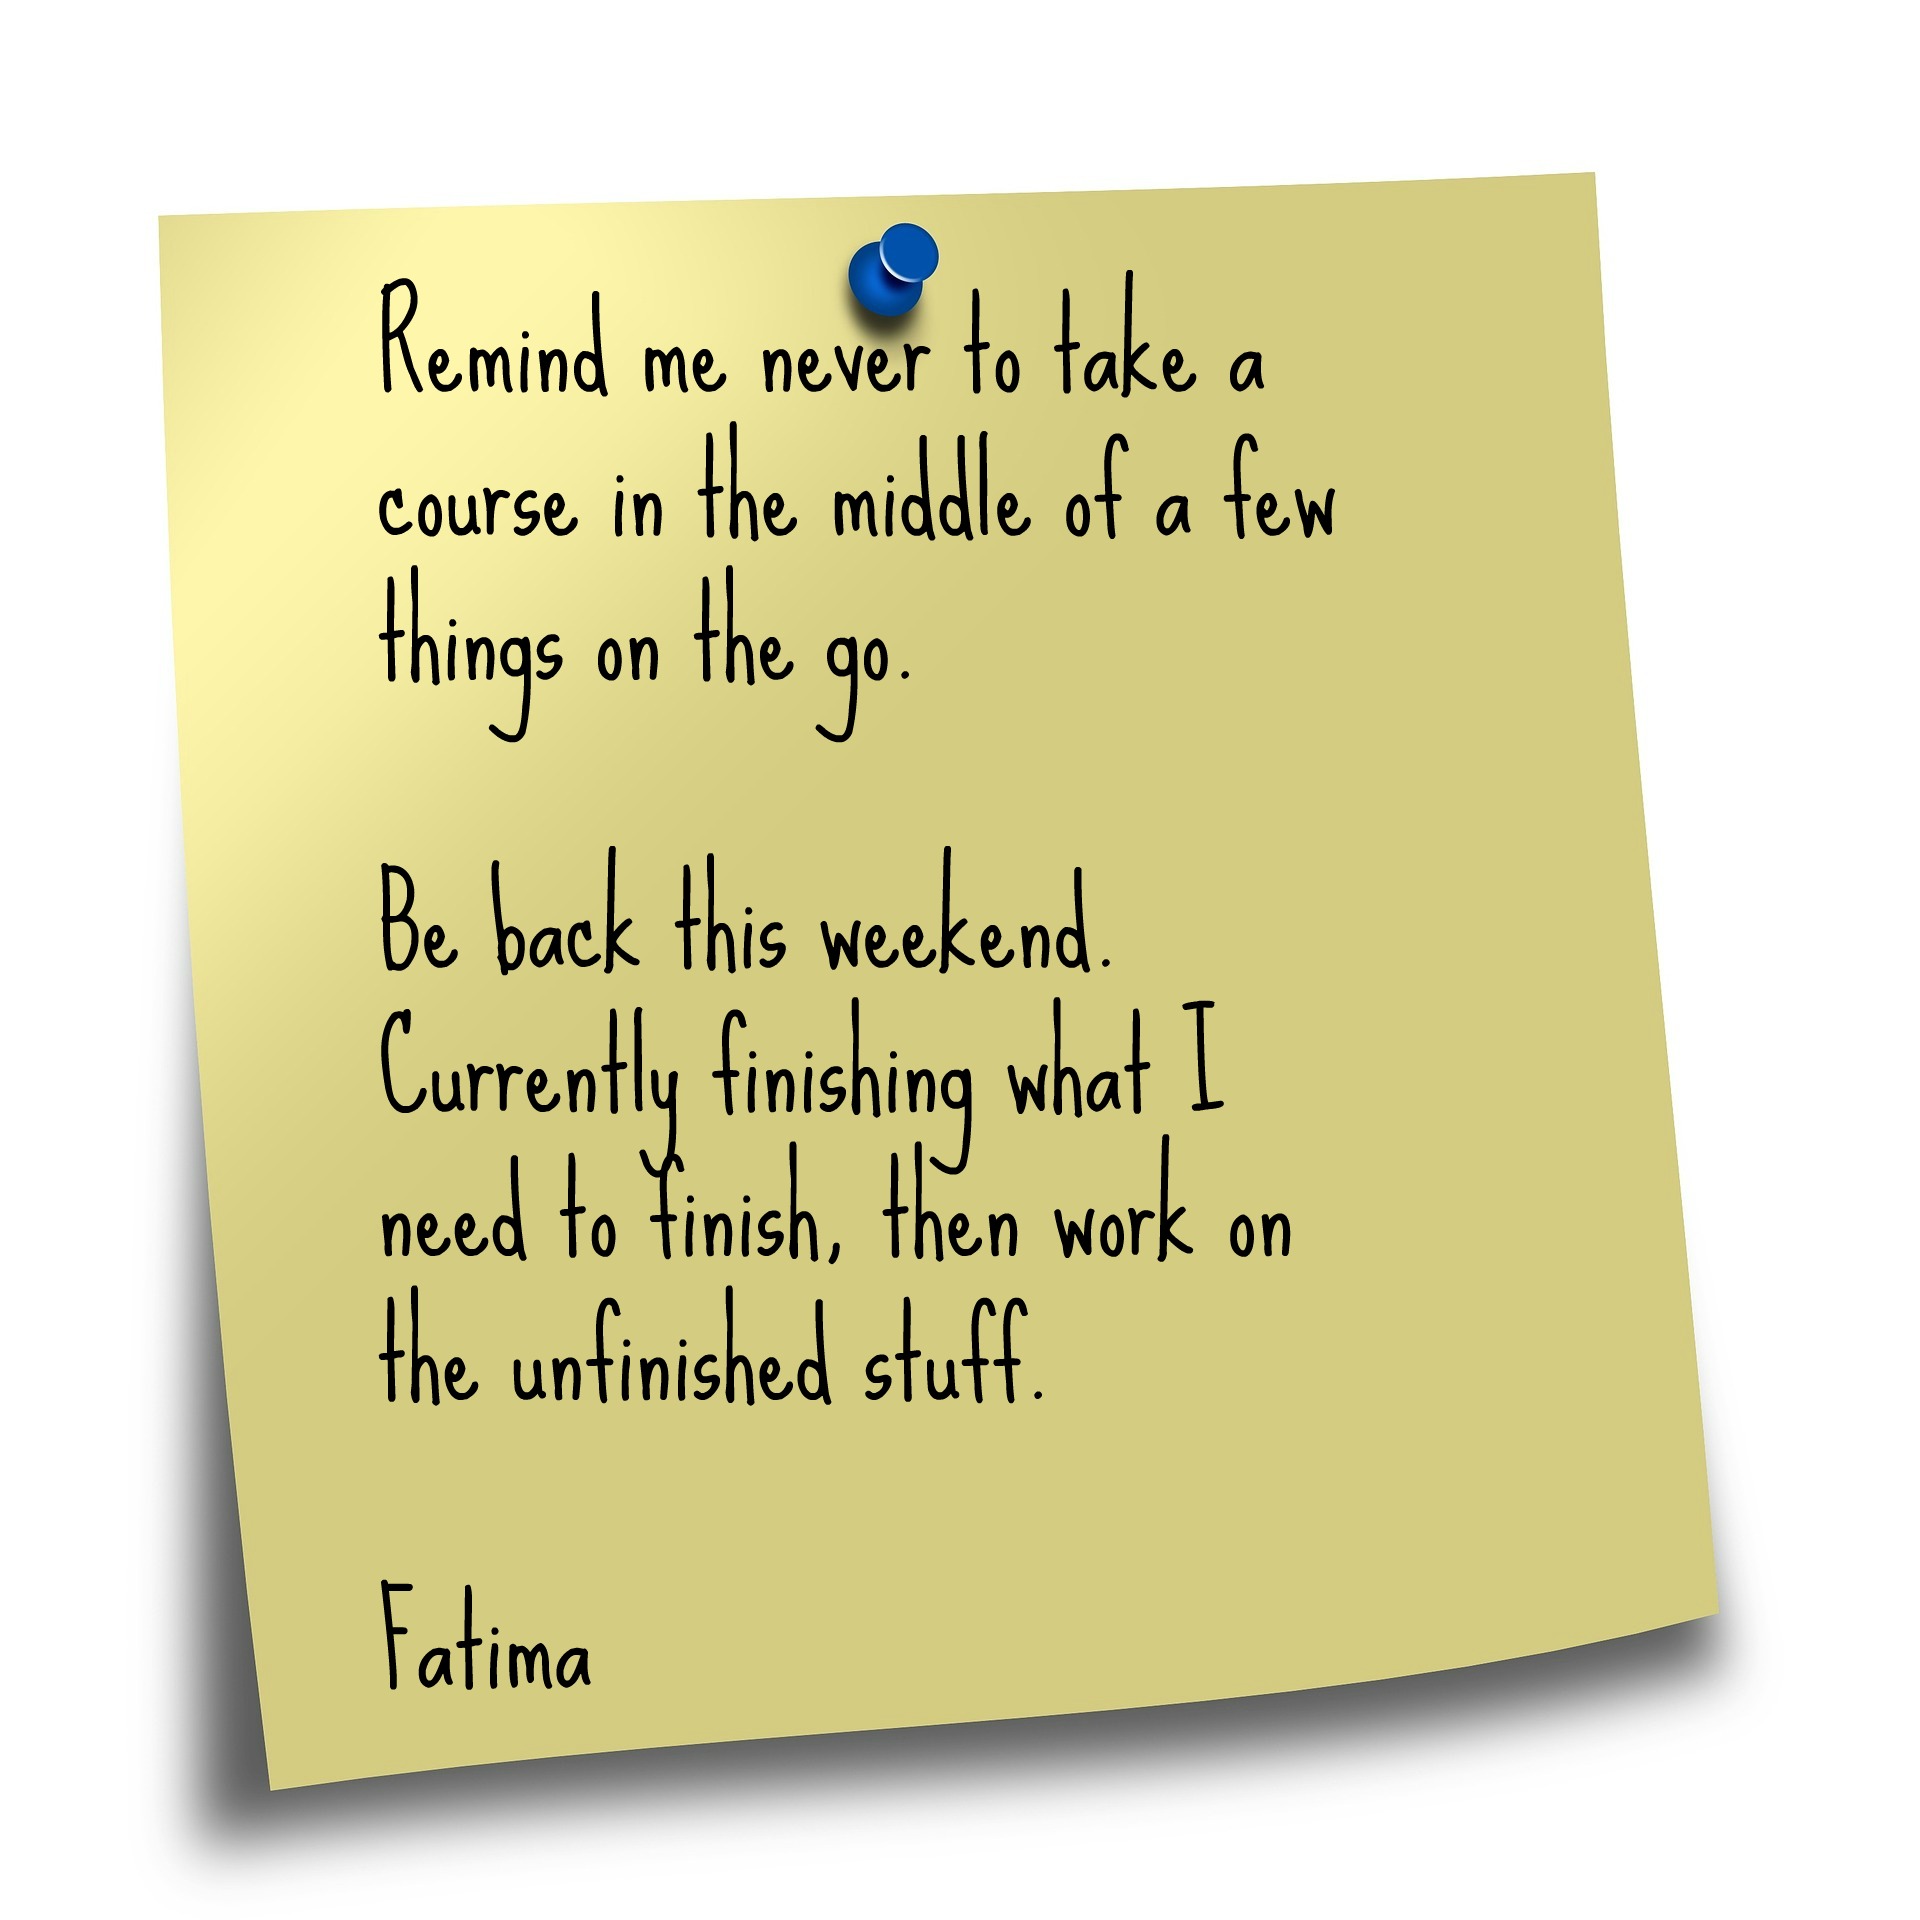 Remind me never to take a
course in the middle of a few
things on the go.
Be back this weekend.
Currently finishing what I
need to finish, then work on
the unfinished stuff.
Fatima